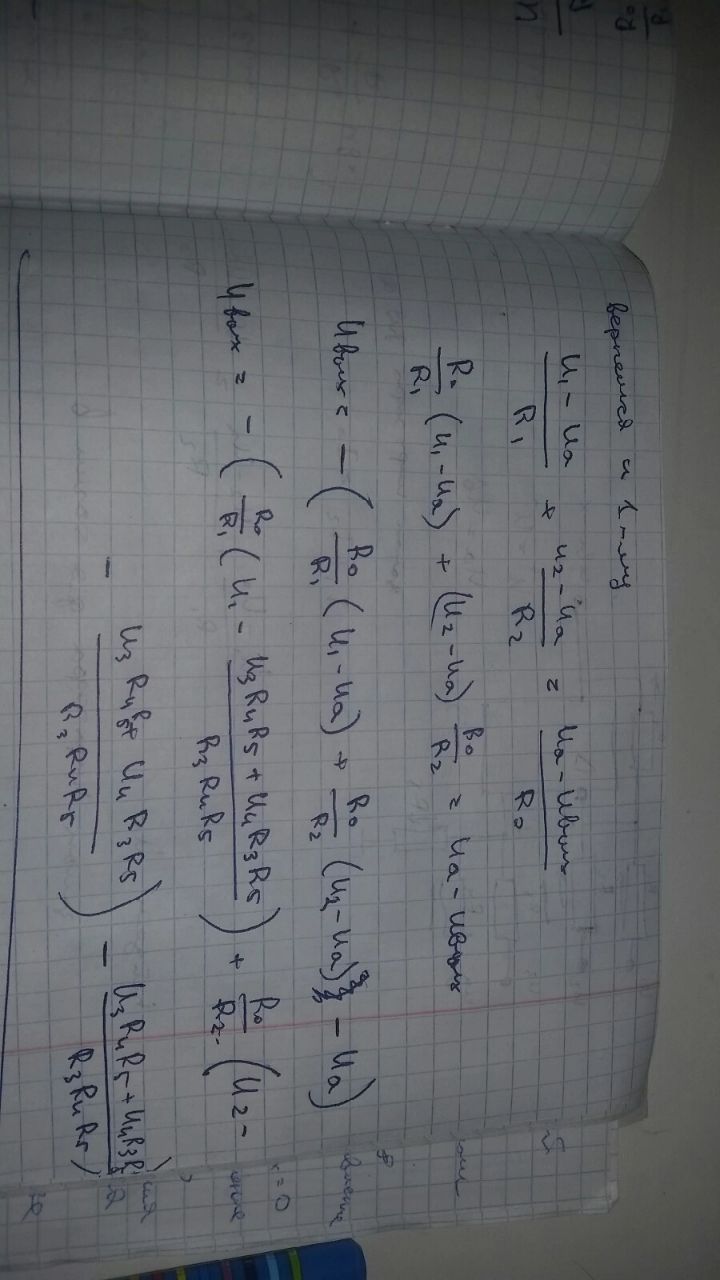 вернемся к 1-му
(U₁ - Ua)/R₁ + (U₂ - Ua)/R₂ = (Ua - Uвых)/R₀
R₀/R₁ (U₁ - Ua) + (U₂ - Ua) R₀/R₂ = Ua - Uвых
Uвых = - (R₀/R₁ (U₁ - Ua) + R₀/R₂ (U₂ - Ua) - Ua)
Uвых = - (R₀/R₁ (U₁ - (U₃R₄R₅ + U₄R₃R₅)/(R₃R₄R₅)) + R₀/R₂ (U₂ -
- (U₃R₄R₅ + U₄R₃R₅)/(R₃R₄R₅)) - (U₃R₄R₅ + U₄R₃R₅)/(R₃R₄R₅))
= 0